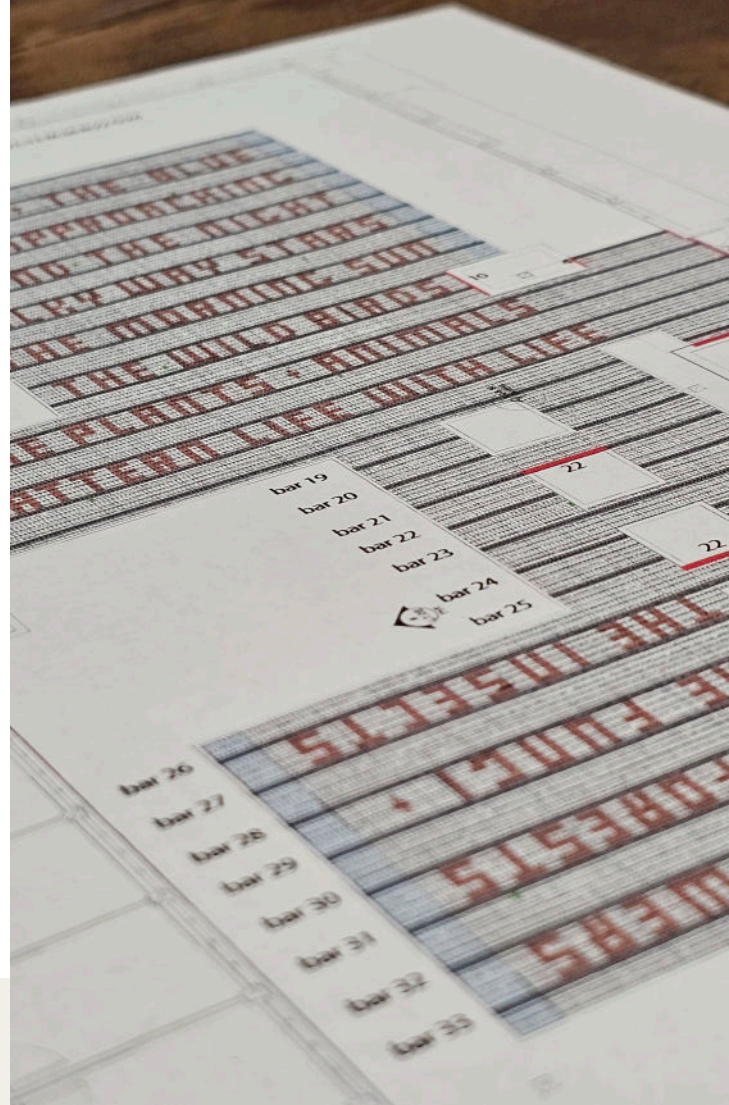 THE BLUE
APPROACHING
ND THE NIGHT
LKY WAY STARS
HE MORNING SUN
THE WILD BIRDS
10
E PLANTS + ANIMALS
ATTERN LIFE WITH LIFE
22
22
bar 19
bar 20
bar 21
bar 22
bar 23
bar 24
bar 25
THE INSECTS
E FUNGI +
FORESTS
WERS
bar 26
bar 27
bar 28
bar 29
bar 30
bar 31
bar 32
bar 33